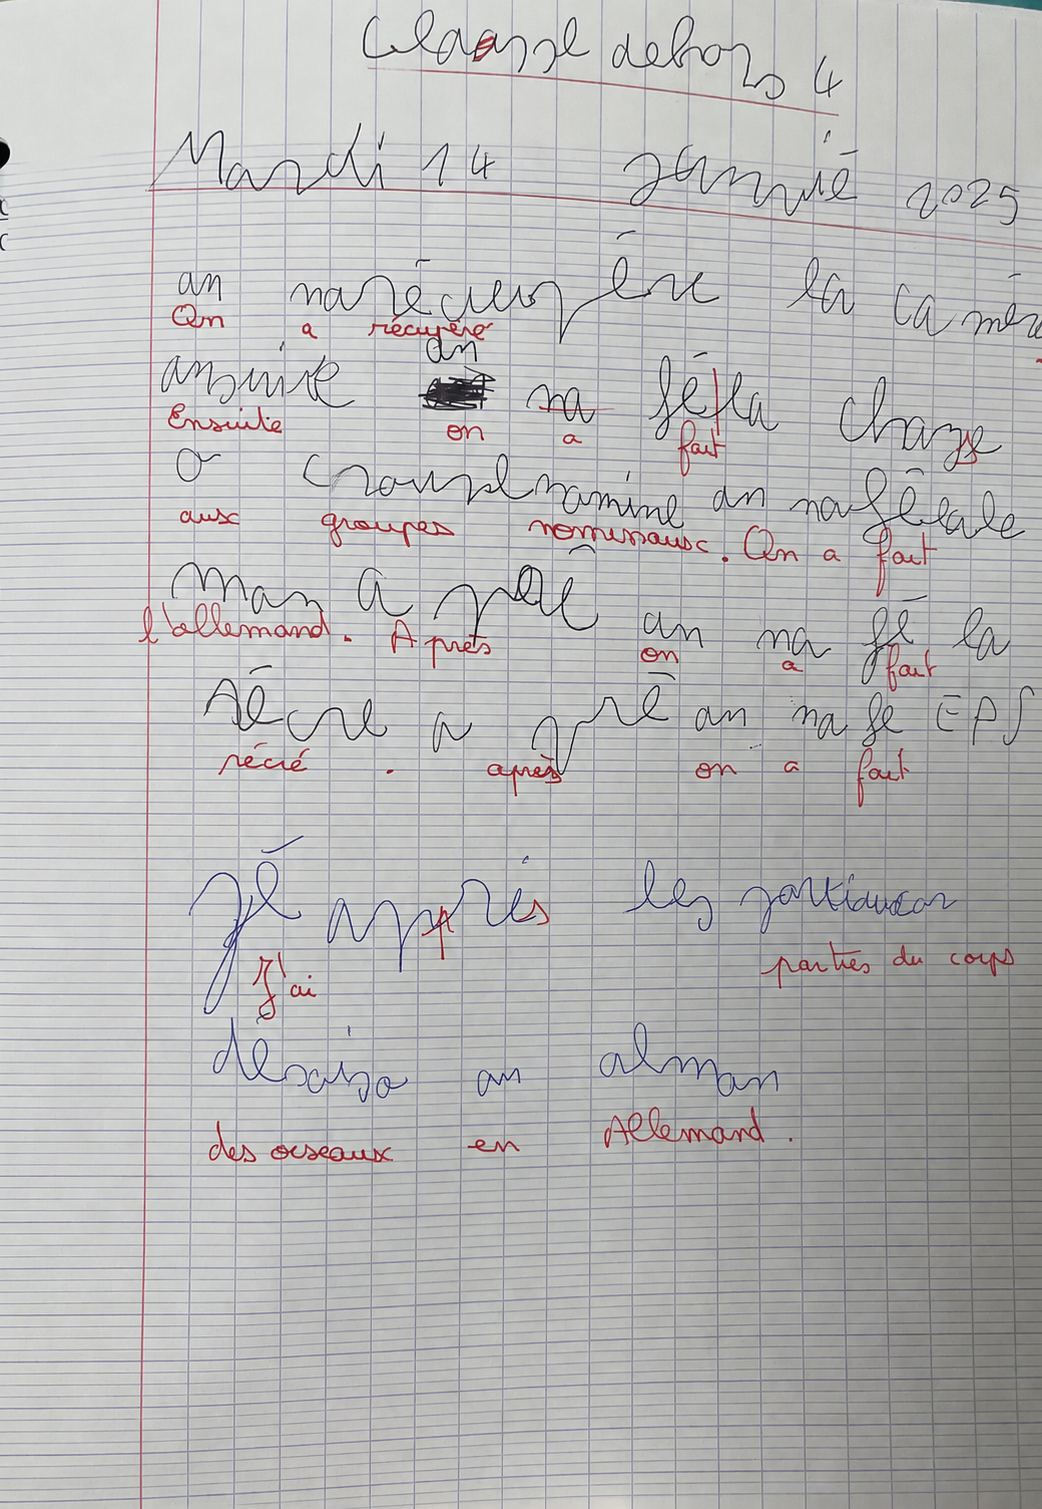 Classe dehors 4
Mardi 14 janvié 2025
an narécupére la camér
On a récupéré
an
ansuite na fé la chasse
Ensuite on a fait
o croupe namine an na fé lale
aux groupes nominaux. On a fait
man a pré an na fé la
l'allemand. Après on a fait
récré a pré an na fé EPS
récré . après on a fait
jé appris les partiducor
J'ai parties du corps
désoiso an alman
des oiseaux en Allemand.